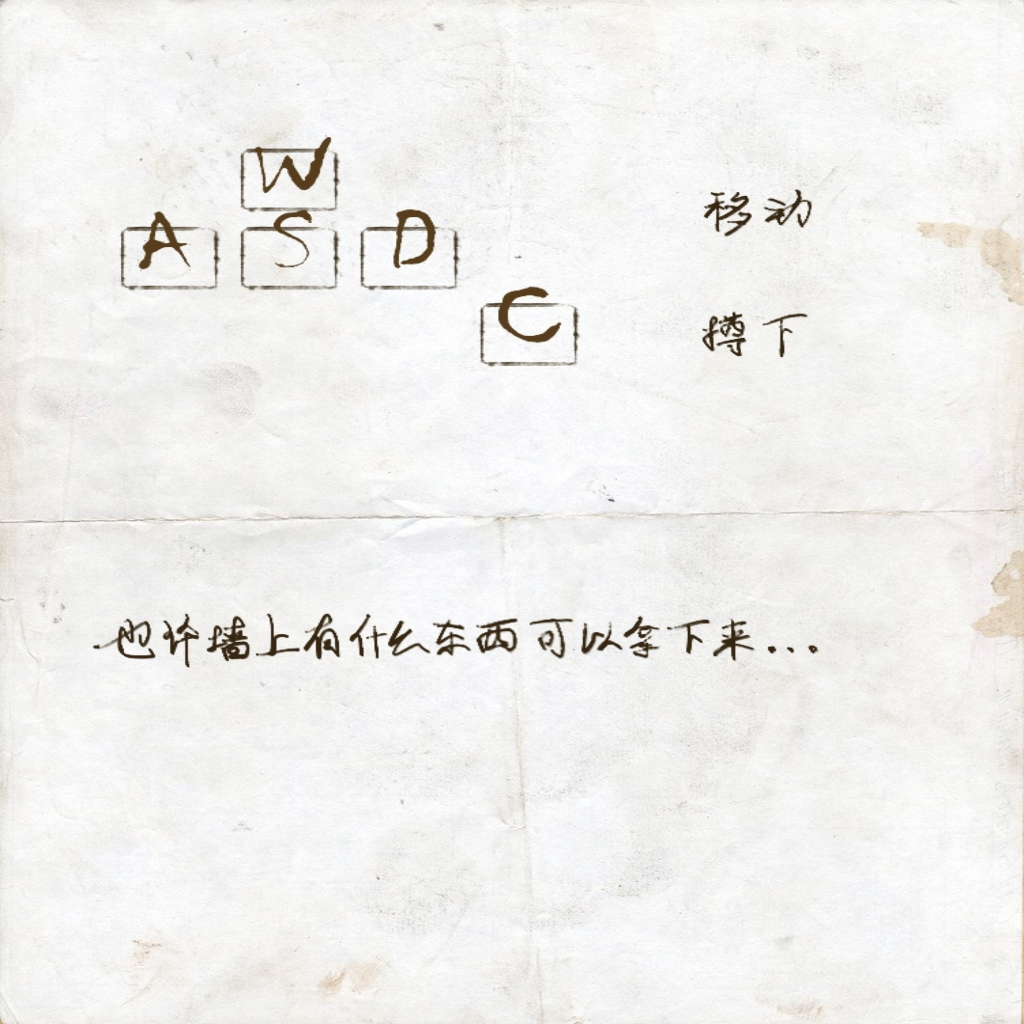 W
A S D 移动
C 撙下
也许墙上有什么东西可以拿下来...